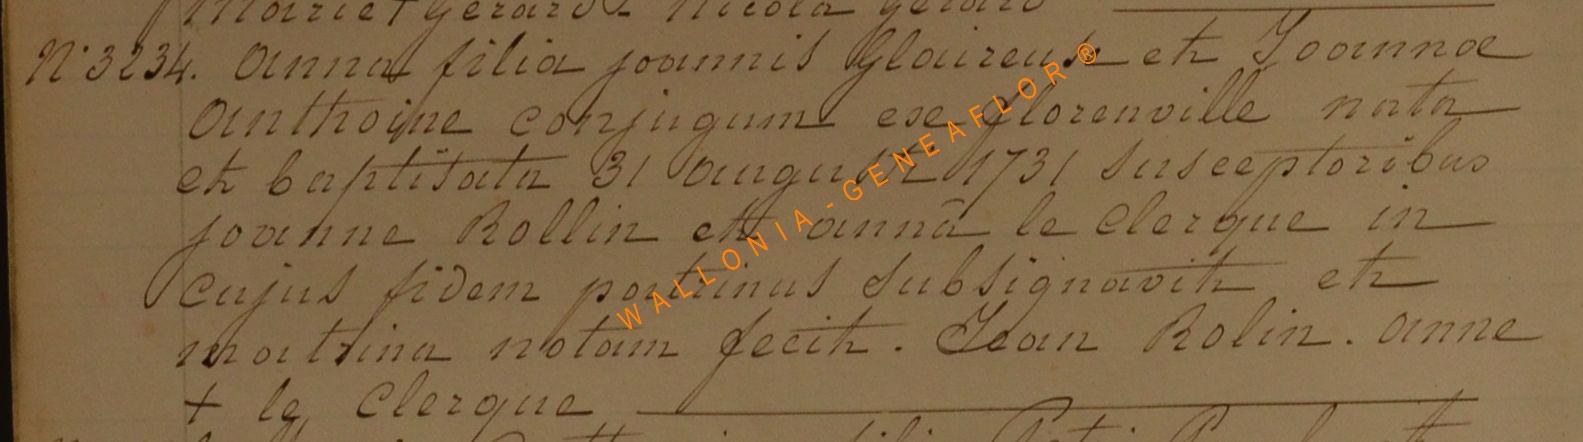 Marie + Gerard. Nicola Gerard
N° 3234. Anna filia joannis Glaireus et Joanna
Anthoine conjugum ex Florenville nata
et baptisata 31 augusti 1731 susceptoribus
joanne Rollin et annâ le Clerque in
cujus fidem patrinus subsignavit et
matrina notam fecit. Jean Rolin. Anne
+ le Clerque
WALLONIA-GENEAFLOR®